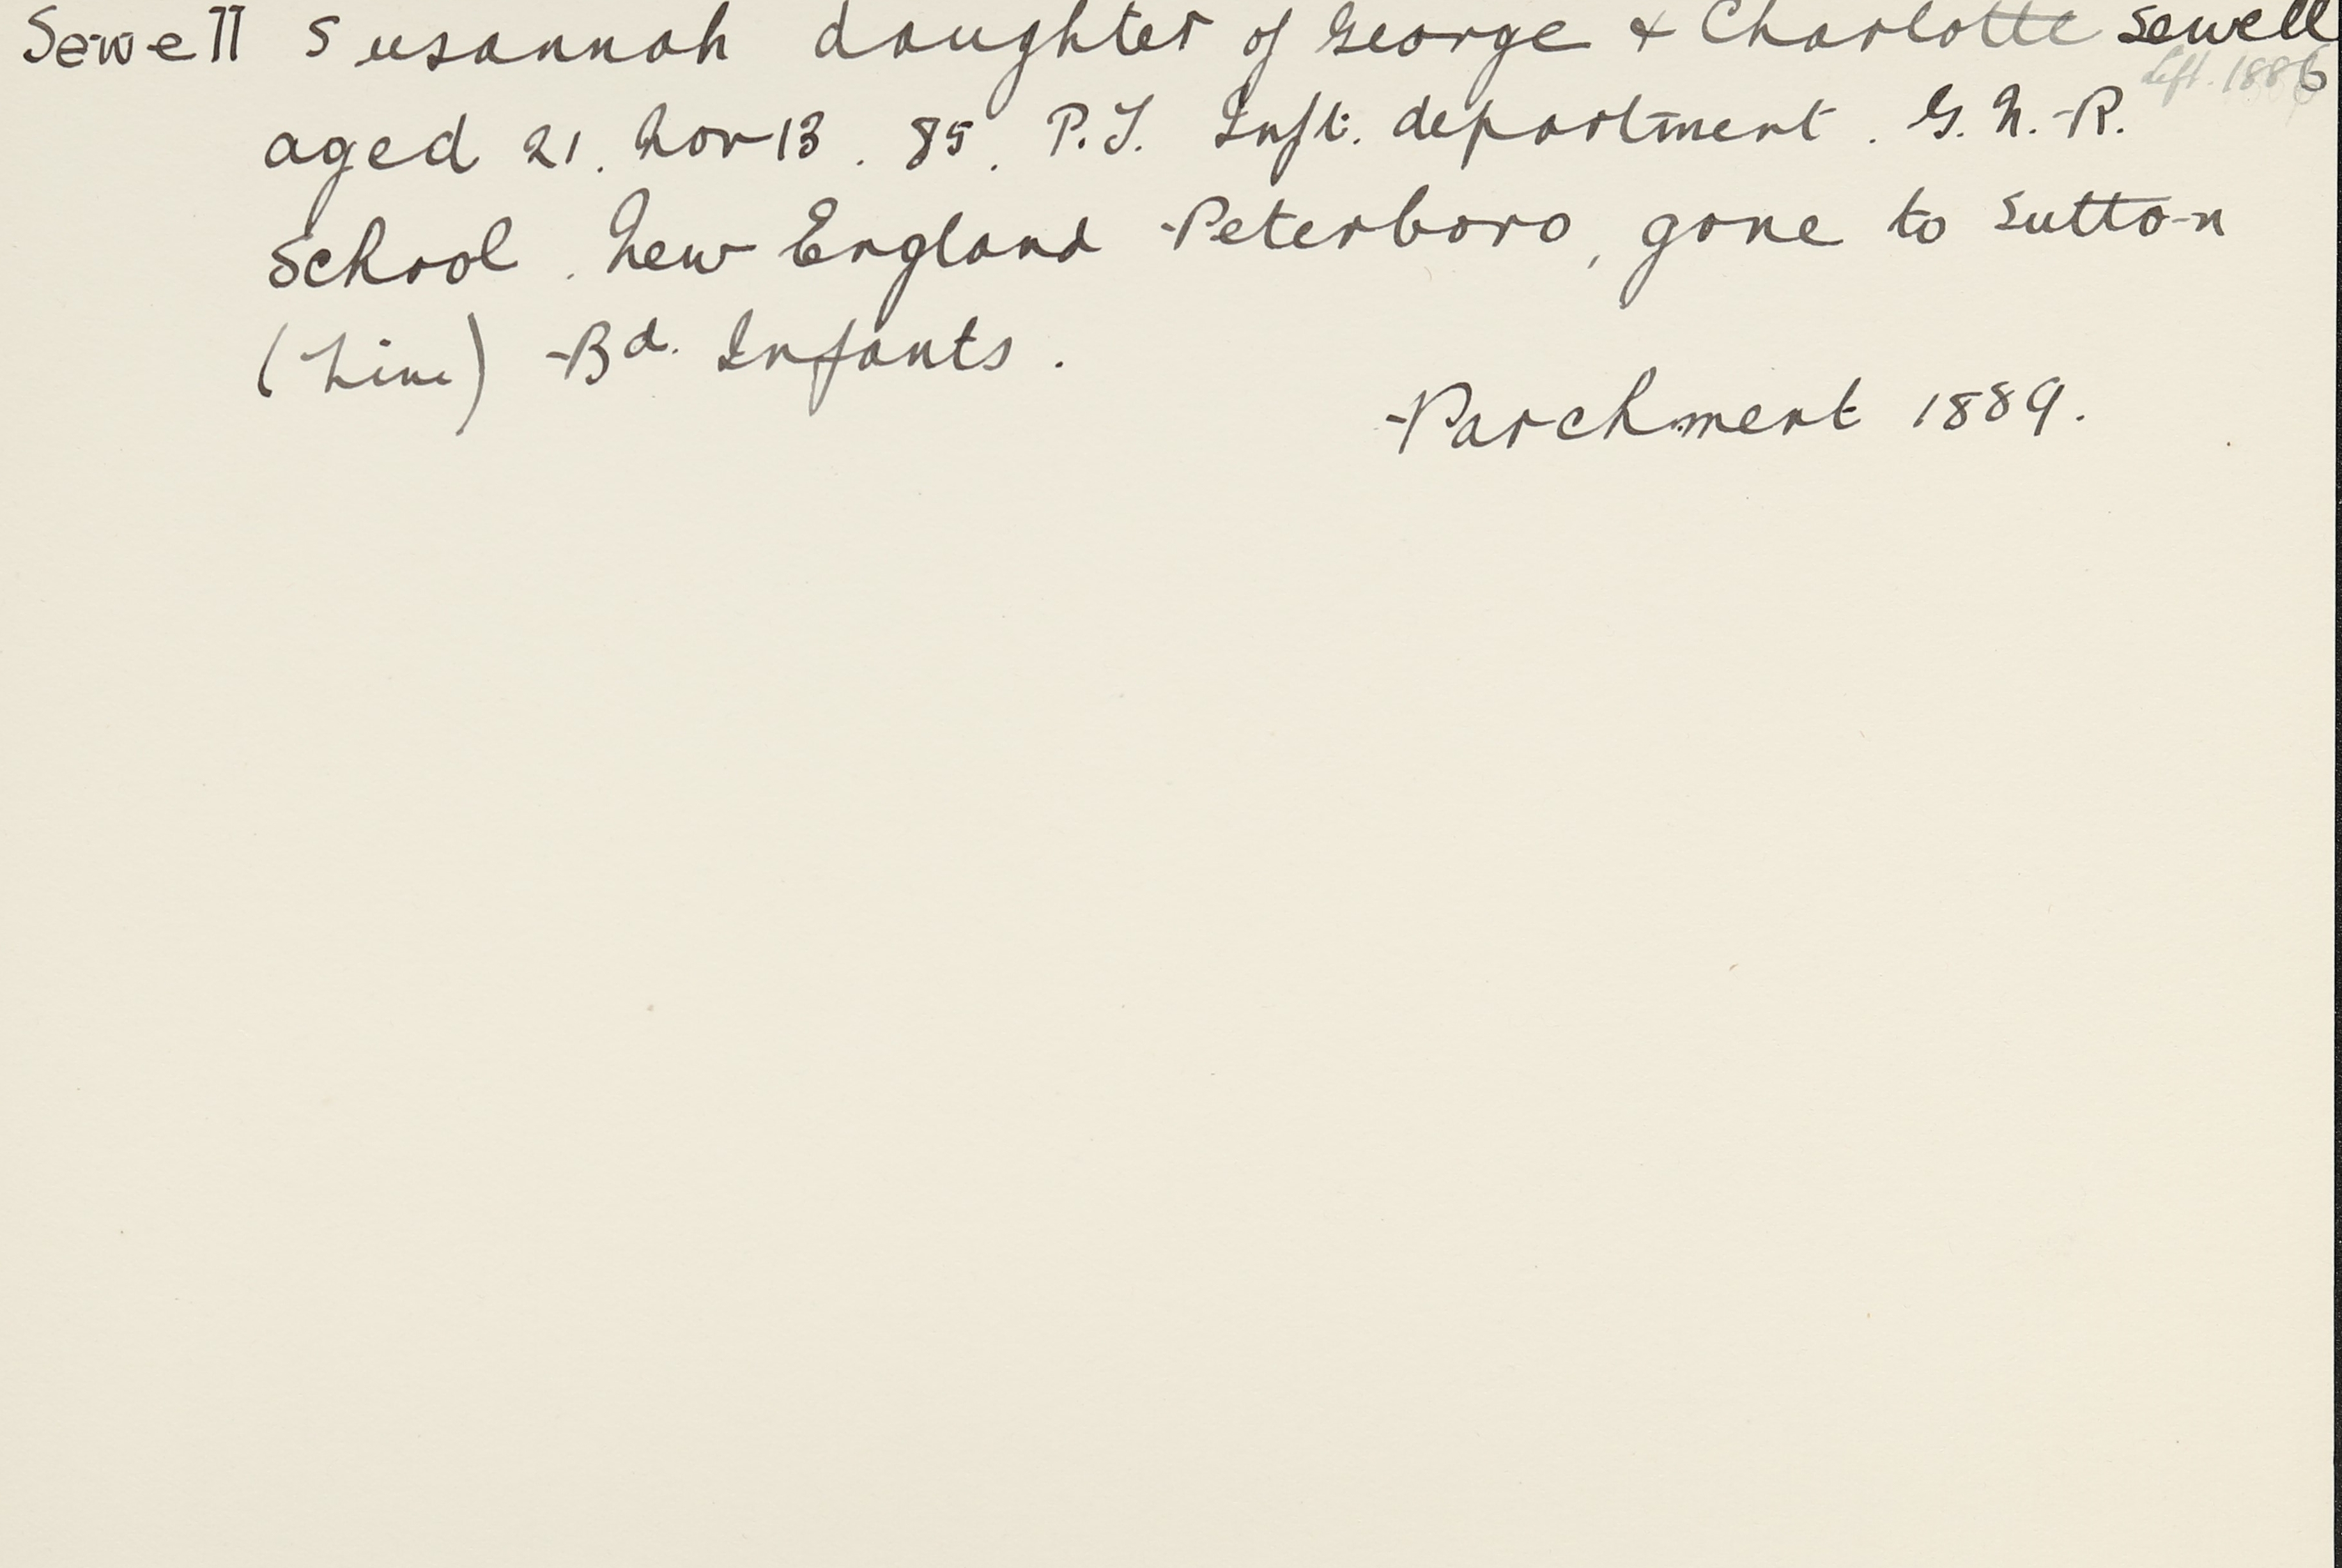 Sewell Susannah daughter of George & Charlotte Sewell
left. 1886
aged 21. Nov 13. 85. P.T. Inft. department. G.N.R.
School. New England Peterboro, gone to Sutton
(Linc) Bd. Infants.
Parchment 1889.